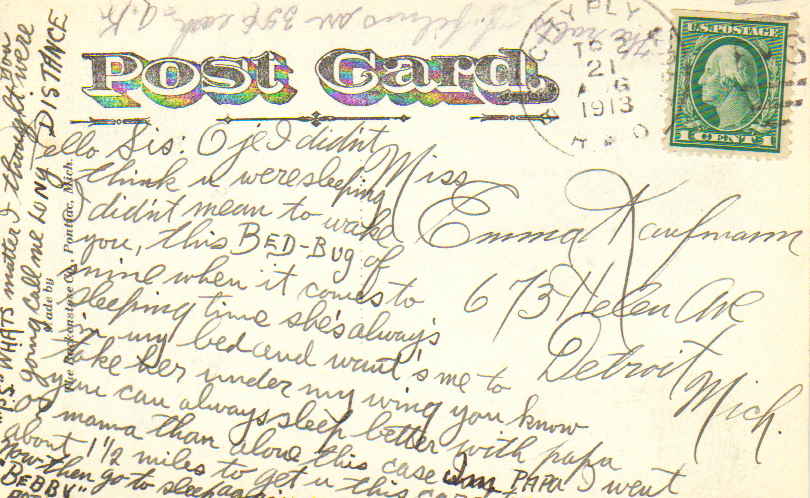 Post Card.
PLY
21
AUG
1913
U.S.POSTAGE
1 CENT 1
ello Sis: Oje I didn't
think u were sleeping
I didn't mean to wake
you, this BED-BUG of
mine when it comes to
sleeping time she's always
in my bed and want's me to
take her under my wing you know
you can always sleep better with papa
or mama than alone this case I'm PAPA I went
about 1 1/2 miles to get u this car
Now-then go to sleep again
"BEBBY"
Miss
Emma Kaufmann
673 Helen Ave
Detroit
Mich.
P.S. WHATS matter I thought you were
going call me LONG DISTANCE
Made by
Co., Pontiac, Mich.